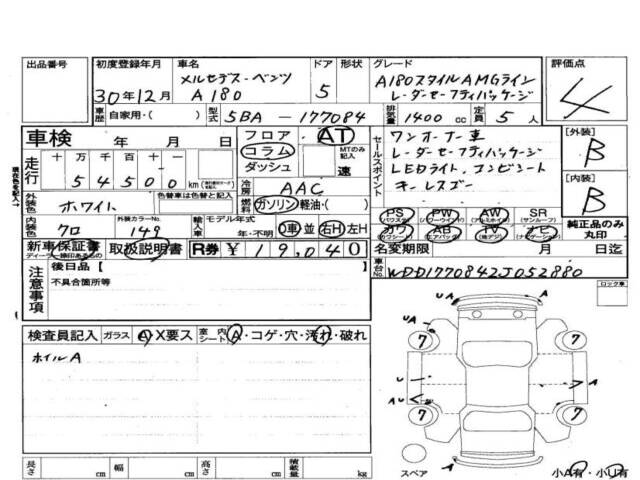 出品番号
初度登録年月
30年12月
車名
メルセデス-ベンツ
A180
ドア
5
形状
グレード
A180スタイルAMGライン
レーダーセーフティパッケージ
評価点
4
車歴
自家用・( )
型式
5BA-177084
排気量
1400 cc
定員
5人
車検 年 月 日
フロア
AT
コラム
ダッシュ
MTのみ記入
速
セールスポイント
ワンオーナー車
レーダーセーフティパッケージ
LEDライト、コンビシート
キーレスゴー
[外装]
B
[内装]
B
走行
十 万 千 百 十 一
5 4 5 0 0 km
現在色を記入→
外装色
ホワイト
色替車は色替と記入
冷房
AAC
燃料
ガソリン・軽油・( )
内装色
クロ
外装カラーNo.
149
輸入車
モデル年式
年・不明
D車 並 右H 左H
PS (パワステ)
PW (パワーウインドウ)
AW (アルミホイール)
SR (サンルーフ)
カワ (カワシート)
AB (エアバッグ)
TV (地デジ)
ナビ (ナビゲーション)
純正品のみ丸印
新車保証書
取扱説明書
R券 ¥19,040
名変期限 月 日
車台No.
WDD1770842J052880
注意事項
後日品 [ ]
不具合箇所等
ロック車
検査員記入
ガラス
A・X要ス
室内シート
A・コゲ・穴・汚れ・破れ
ホイルA
UA
A
7
7
A
U
A
A
7
7
スペア
小A有・小U有
長さ cm
幅 cm
高さ cm
積載量 kg